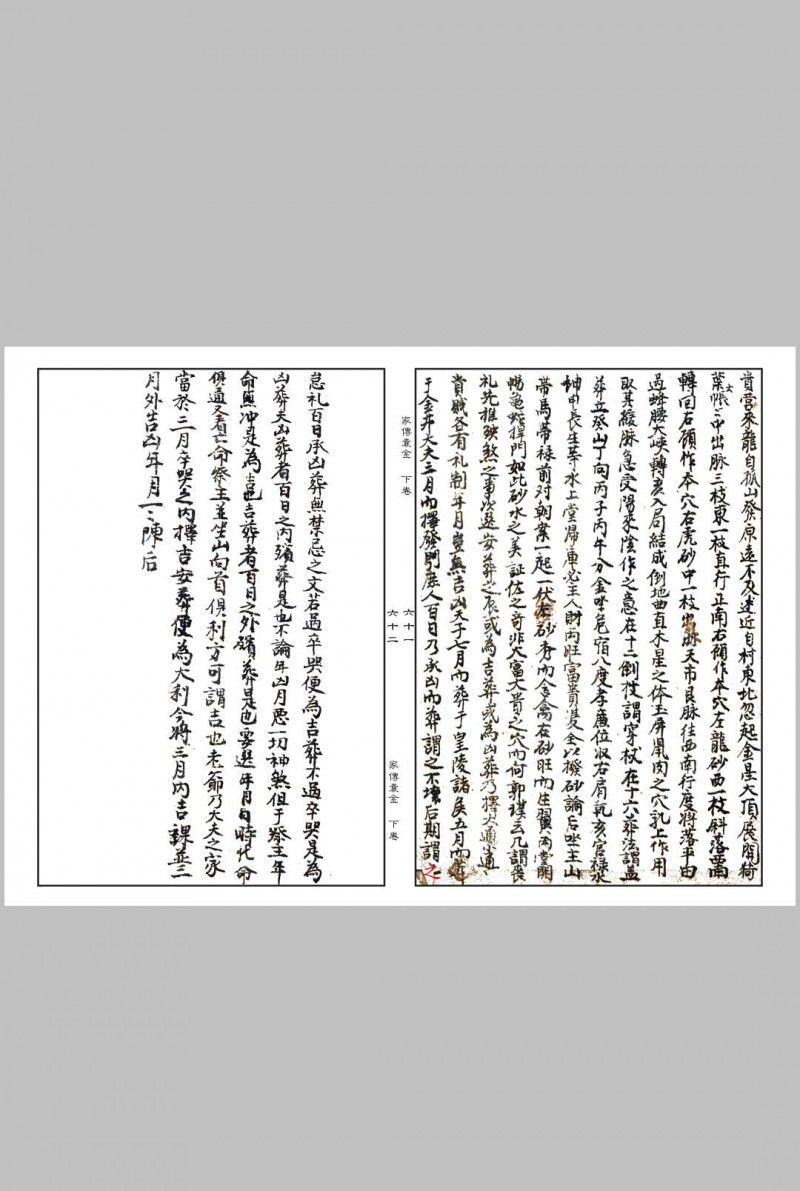 貴营來龍自孤山發原遠不及述近自村東北忽起金星大頂展開倚
葉帳大帳之中出脉三枝東一枝直行正南右顧作本穴左龍砂西一枝斜落西南
轉回右顧作本穴右虎砂中一枝出脉天市艮脉往西南行度将落平田
過蜂腰大峡轉亥入局結成倒地曲直木星之体玉屏風肉之穴乳上作用
取其緩脉急受陽來陰作之意在十二倒杖謂穿杖在十六葬法謂盖
葬立癸山丁向丙子丙午分金坐危宿八度孝廉位収右肩乹亥宫禄泉
坤申長生等水上堂歸庫必主人財两旺富貴双全以撥砂論后坐主山
帶馬帶禄前对朝案一起一伏右砂秀而含禽左砂旺而生翼两堂開
暢龜蛇捍門如此砂水之美証佐之奇非大富大贵之穴而何郭璞云凡謂喪
礼先推殃煞之事次选安葬之辰或為吉葬或為凶葬乃擇大通小通
貴賤各有礼制年月豈無吉凶天子七月而葬于皇陵諸侯五月而葬
于金井大夫三月而擇發門庶人百日乃承凶而葬謂之不壞后期謂之
家傳袁金 下卷
六十一
六十二
家傳袁金 下卷
怠礼百日承凶葬無禁忌之文若過卒哭便為吉葬不過卒哭是為
凶葬夫凶葬者百日之内殯葬是也不論年凶月悪一切神煞但于祭主年
命無冲是為吉也吉葬者百日之外殯葬是也要選年月日時化命
俱通又看亡命祭主並坐山向首俱利方可謂吉也老爺乃大夫之家
當於三月卒哭之内擇吉安葬便為大利今將三月内吉課並三
月外吉凶年月一一陳后